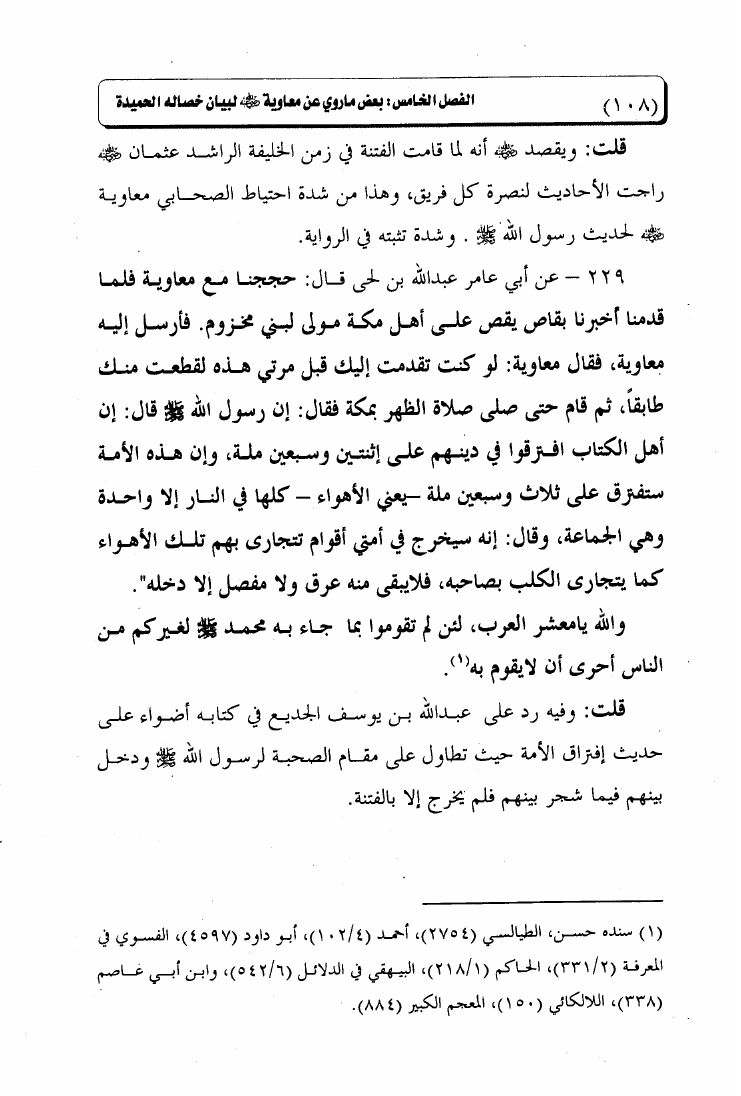 (١٠٨) الفصل الخامس: بعض ماروي عن معاوية ﷺ لبيان خصاله الحميدة
قلت: ويقصد ﷺ أنه لما قامت الفتنة في زمن الخليفة الراشد عثمان ﷺ
راجت الأحاديث لنصرة كل فريق، وهذا من شدة احتياط الصحابي معاوية
ﷺ لحديث رسول الله ﷺ . وشدة تثبته في الرواية.
٢٢٩ – عن أبي عامر عبدالله بن لحى قال: حججنا مع معاوية فلما
قدمنا أخبرنا بقاص يقص على أهل مكة مولى لبني مخزوم. فأرسل إليه
معاوية، فقال معاوية: لو كنت تقدمت إليك قبل مرتي هذه لقطعت منك
طابقاً، ثم قام حتى صلى صلاة الظهر بمكة فقال: إن رسول الله ﷺ قال: إن
أهل الكتاب افترقوا في دينهم على إثنتين وسبعين ملة، وإن هذه الأمة
ستفترق على ثلاث وسبعين ملة –يعني الأهواء – كلها في النار إلا واحدة
وهي الجماعة، وقال: إنه سيخرج في أمتي أقوام تتجارى بهم تلك الأهواء
كما يتجارى الكلب بصاحبه، فلايبقى منه عرق ولا مفصل إلا دخله".
والله يامعشر العرب، لئن لم تقوموا بما جاء به محمد ﷺ لغيركم من
الناس أحرى أن لايقوم به(١).
قلت: وفيه رد على عبدالله بن يوسف الجديع في كتابه أضواء على
حديث إفتراق الأمة حيث تطاول على مقام الصحبة لرسول الله ﷺ ودخل
بينهم فيما شجر بينهم فلم يخرج إلا بالفتنة.
(١) سنده حسن، الطيالسي (٢٧٥٤)، أحمد (١٠٢/٤)، أبو داود (٤٥٩٧)، الفسوي في
المعرفة (٣٣١/٢)، الحاكم (٢١٨/١)، البيهقي في الدلائل (٥٤٢/٦)، وابن أبي عاصم
(٣٣٨)، اللالكائي (١٥٠)، المعجم الكبير (٨٨٤).